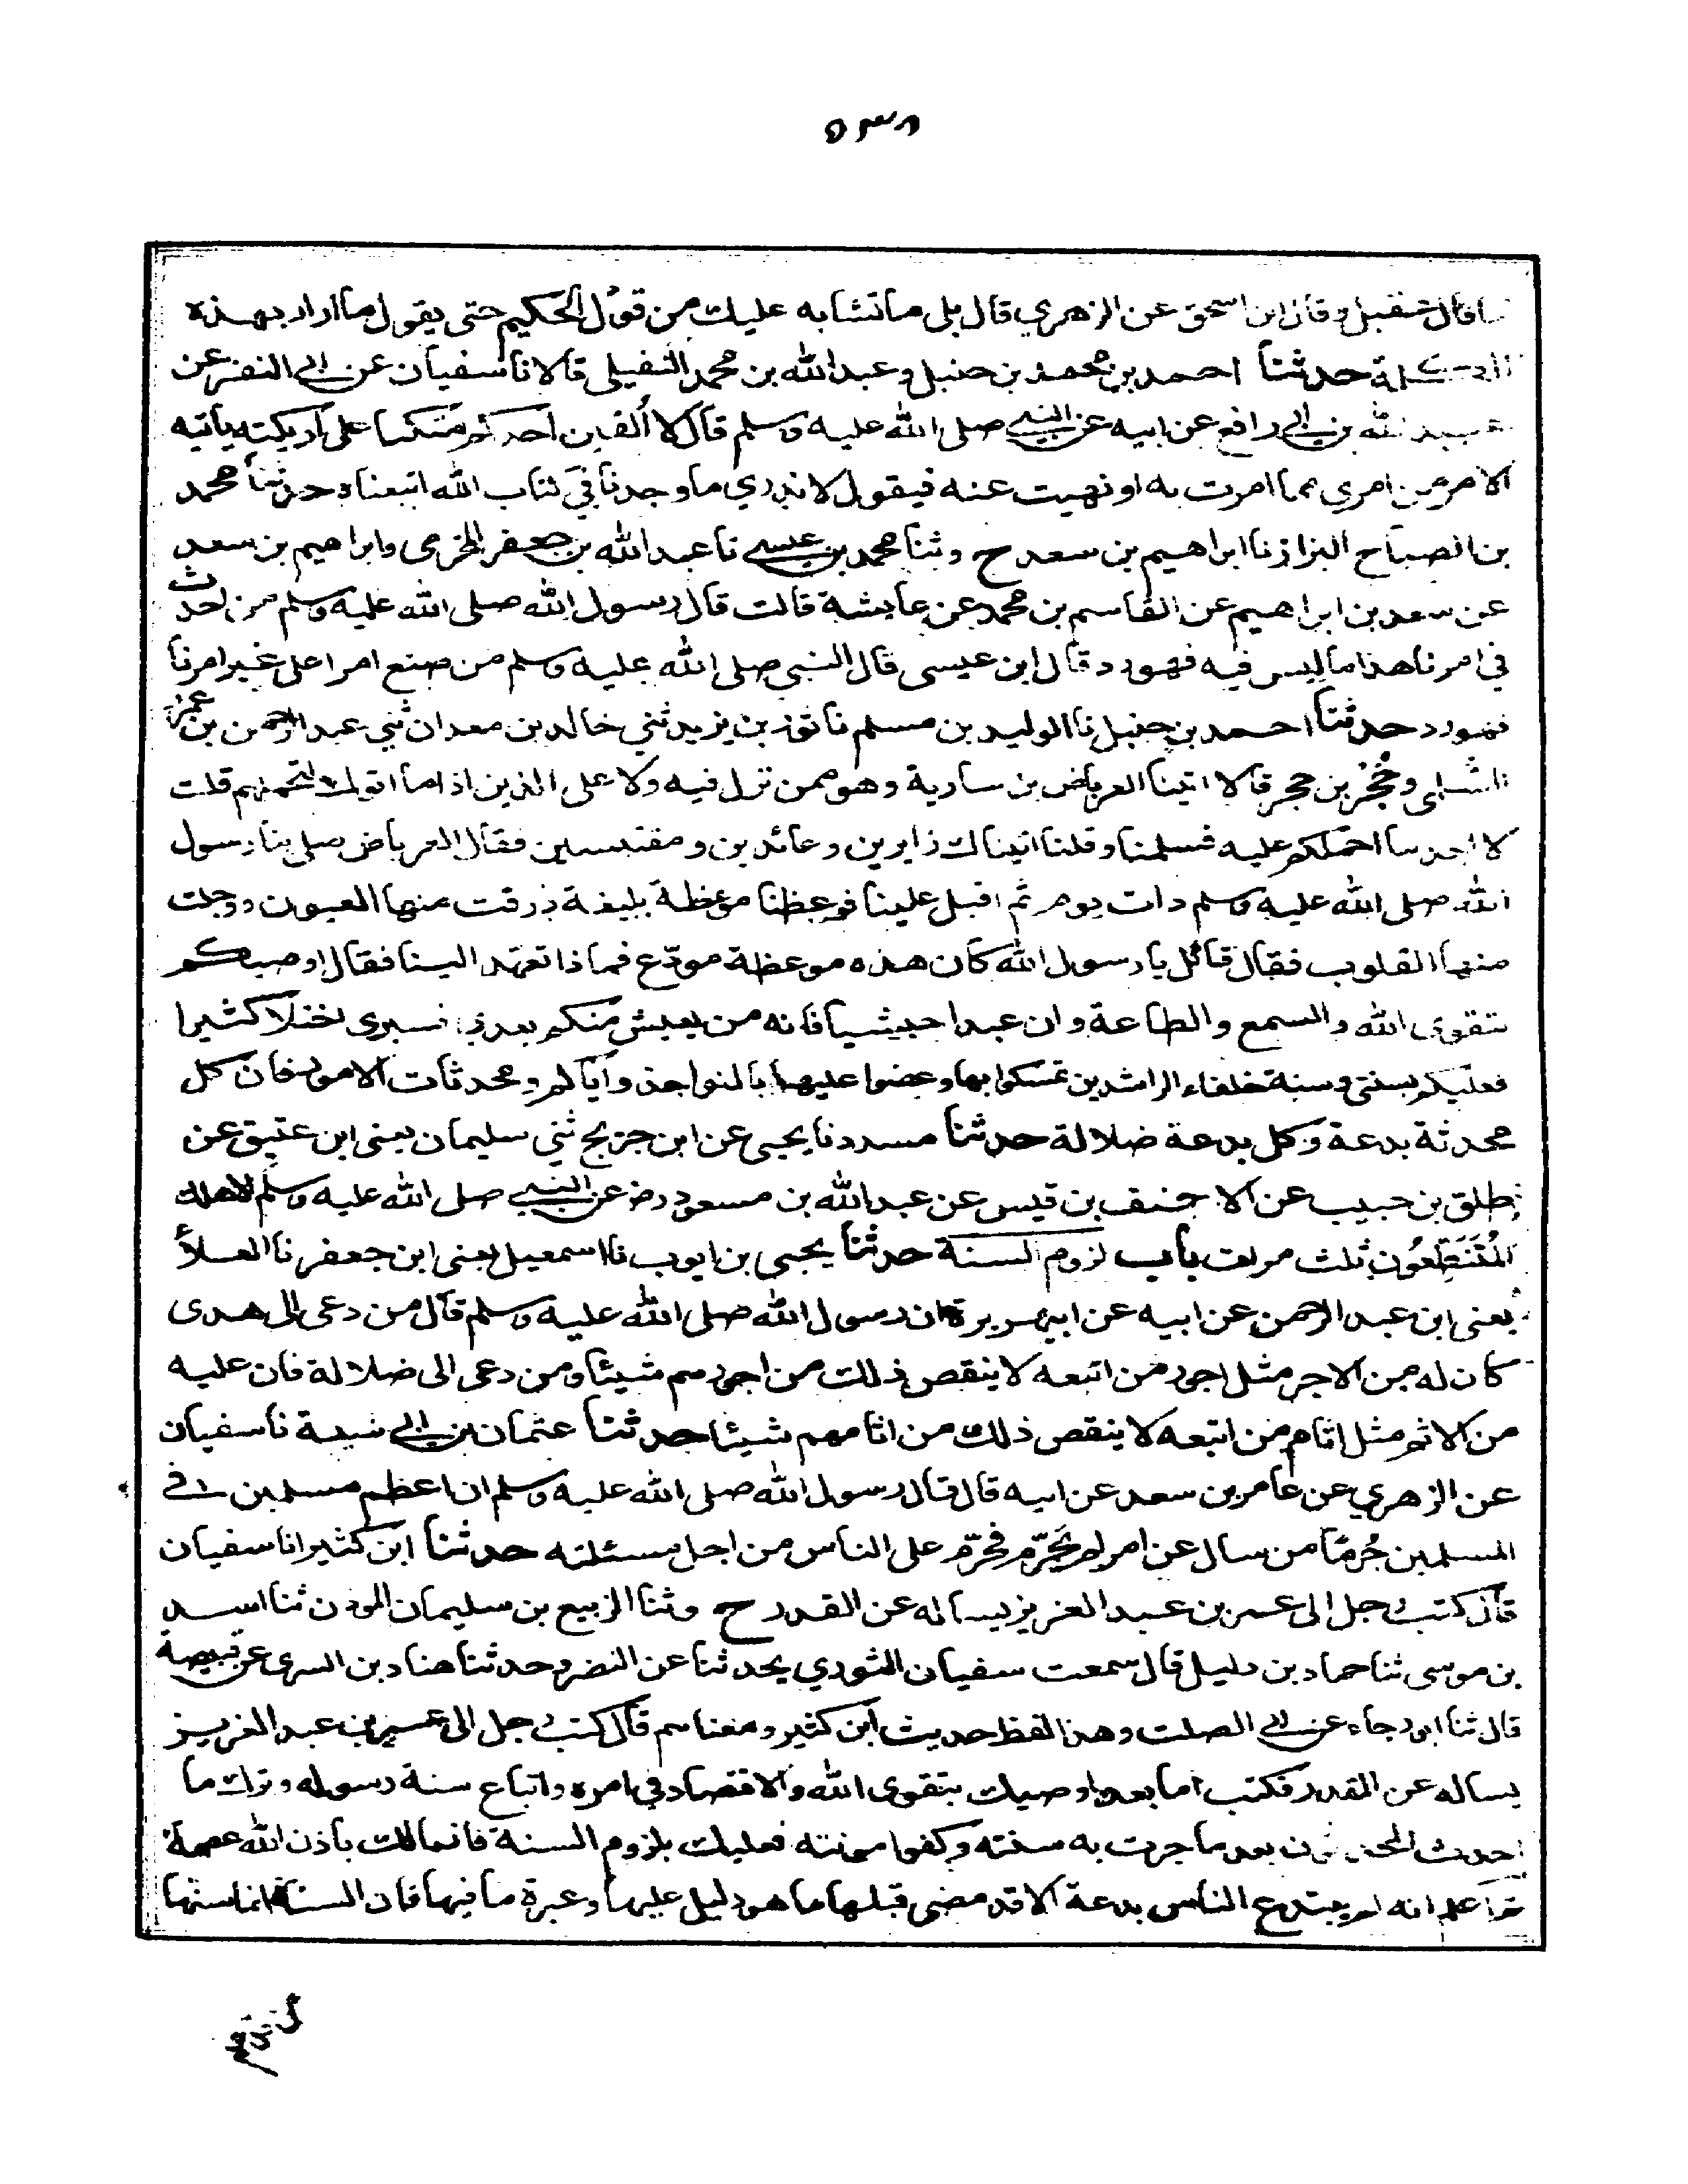 قال عقيل وقال ابن اسحق عن الزهري قال بلى ما تشابه عليك من قول الحكيم حتى يقول ما اراد بهذه
الكلمة حدثنا احمد بن محمد بن حنبل وعبد الله بن محمد النفيلى قالا نا سفيان عن ابي النضر عن
عبيد الله بن ابي رافع عن ابيه عن النبي صلى الله عليه وسلم قال لا ألفين احدكم متكئا على اريكته ياتيه
الامر من امري مما امرت به او نهيت عنه فيقول لا ندري ما وجدنا في كتاب الله اتبعناه حدثنا محمد
بن الصباح البزاز نا ابراهيم بن سعد ح وثنا محمد بن عيسى نا عبد الله بن جعفر المخرمى وابراهيم بن سعد
عن سعد بن ابراهيم عن القاسم بن محمد عن عايشة قالت قال رسول الله صلى الله عليه وسلم من احدث
في امرنا هذا ما ليس فيه فهو رد قال ابن عيسى قال النبي صلى الله عليه وسلم من صنع امرا على غير امرنا
فهو رد حدثنا احمد بن حنبل نا الوليد بن مسلم نا ثور بن يزيد ثني خالد بن معدان ثني عبد الرحمن بن عمرو
السلمى وحُجْر بن حجر قالا اتينا العرباض بن سارية وهو ممن نزل فيه ولا على الذين اذا ما اتوك لتحملهم قلت
لا اجد ما احملكم عليه فسلمنا وقلنا اتيناك زايرين وعائدين ومقتبسين فقال العرباض صلى بنا رسول
الله صلى الله عليه وسلم ذات يوم ثم اقبل علينا فوعظنا موعظة بليغة ذرفت منها العيون ووجلت
منها القلوب فقال قائل يا رسول الله كأن هذه موعظة مودّع فماذا تعهد الينا فقال اوصيكم
بتقوى الله والسمع والطاعة وان عبدا حبشيا فانه من يعيش منكم بعدي فسيرى اختلافا كثيرا
فعليكم بسنتى وسنة خلفاء الراشدين تمسكوا بها وعضوا عليها بالنواجذ واياكم ومحدثات الامور فان كل
محدثة بدعة وكل بدعة ضلالة حدثنا مسدد نا يحيى عن ابن جريج ثني سليمان يعنى ابن عتيق عن
طلق بن حبيب عن الاحنف بن قيس عن عبد الله بن مسعود رضـ عن النبي صلى الله عليه وسلم الا هلك
المُتَنَطِّعُون ثلث مرات باب لزوم السنة حدثنا يحيى بن ايوب نا اسمعيل يعنى ابن جعفر نا العلاء
يعنى ابن عبد الرحمن عن ابيه عن ابي هريرة ان رسول الله صلى الله عليه وسلم قال من دعى الى هدى
كان له من الاجر مثل اجور من اتبعه لا ينقص ذلك من اجورهم شيئا ومن دعى الى ضلالة فان عليه
من الاثم مثل اثام من اتبعه لا ينقص ذلك من اثامهم شيئا حدثنا عثمان بن ابي شيبة نا سفيان
عن الزهري عن عامر بن سعد عن ابيه قال قال رسول الله صلى الله عليه وسلم ان اعظم مسلمين في
المسلمين جُرمًا من سال عن امر لم يُحَرّم فحُرّم على الناس من اجل مسئلته حدثنا ابن كثير انا سفيان
قال كتب رجل الى عمر بن عبد العزيز يساله عن القدر ح وثنا الربيع بن سليمان الموذن ثنا اسد
بن موسى ثنا حماد بن دليل قال سمعت سفيان الثوري يحدثنا عن النضر وحدثنا هناد بن السرى عن قبيصة
قال ثنا ابو رجاء عن ابي الصلت وهذا لفظ حديث ابن كثير ومعناهم قال كتب رجل الى عمر بن عبد العزيز
يساله عن القدر فكتب اما بعد اوصيك بتقوى الله والاقتصاد في امره واتباع سنة رسوله وترك ما
احدث المحدثون بعد ما جرت به سنته وكفوا مونته فعليك بلزوم السنة فانها لك باذن الله عصمة
ثم اعلم انه لم يبتدع الناس بدعة الا قد مضى قبلها ما هو دليل عليها وعبرة ما فيها فان السنة انما سنها